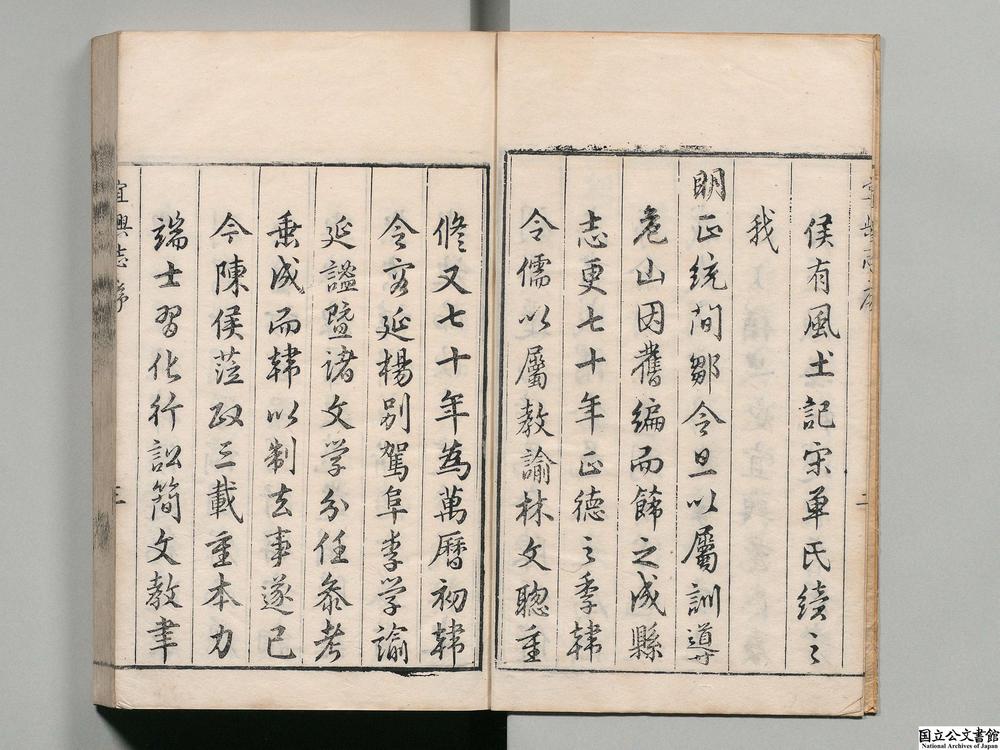 侯有風土記宋單氏續之
我
明正統間鄒令旦以屬訓導
危山因舊編而餙之成縣
志更七十年正德之季韓
令儒以屬教諭林文聰重
修又七十年為萬曆初韓
令容延楊別駕阜李學諭
延謐暨諸文学分任叅考
垂成而韓以制去事遂已
今陳侯蒞政三載重本力
端士習化行訟簡文教聿
宜興志序
三
国立公文書館
National Archives of Japan